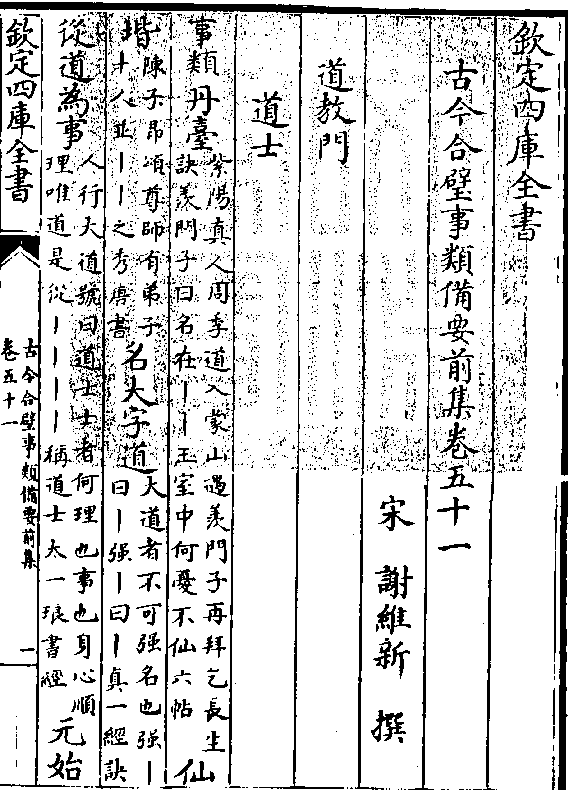 欽定四庫全書
古今合璧事類備要前集卷五十一
宋 謝維新 撰
道教門
道士
事類丹臺紫陽真人周季道入蒙山遇羨門子再拜乞長生
訣羨門子曰名在丨丨玉室中何憂不仙六帖仙
堦陳子昻頌尊師有弟子
十人並丨丨之秀唐書名大字道大道者不可强名也强丨
曰丨强丨曰丨真一經訣
從道為事人行大道號曰道士士者何理也事也身心順
理唯道是從丨丨丨丨稱道士太一琅書經元始
欽定四庫全書
古今合璧事類備要前集
卷五十一
一